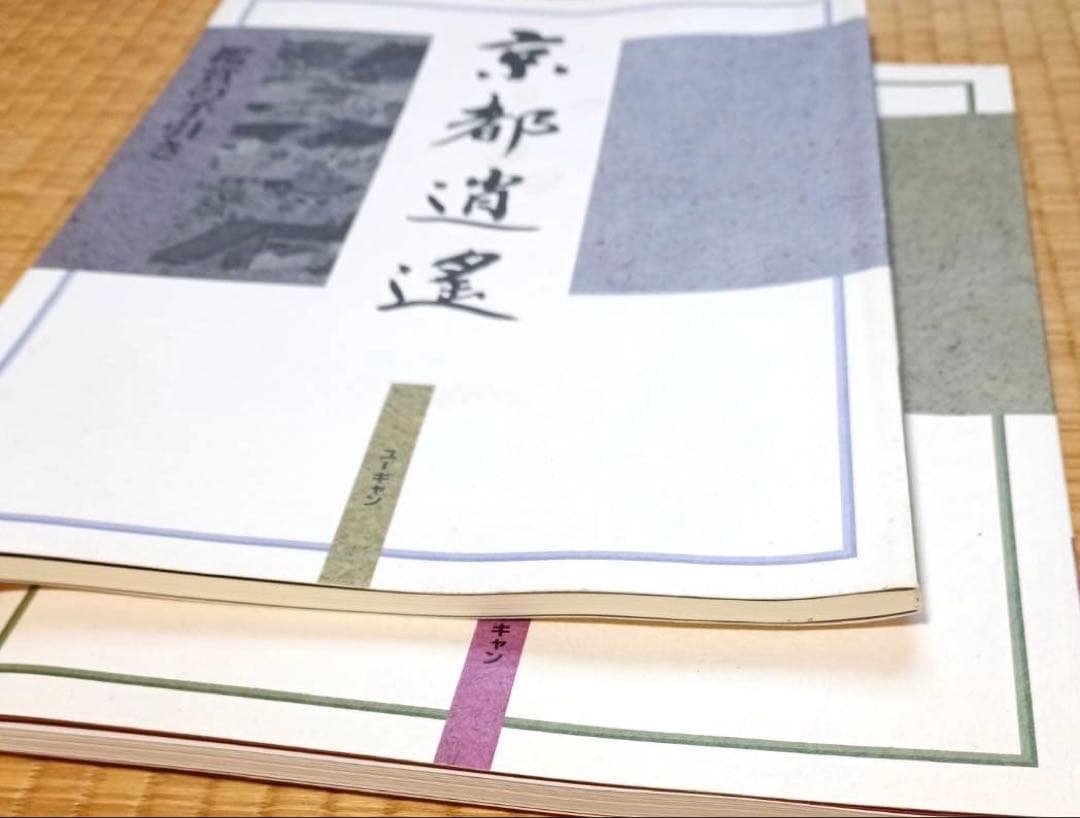 京都逍遙
ユーキャン
キャン